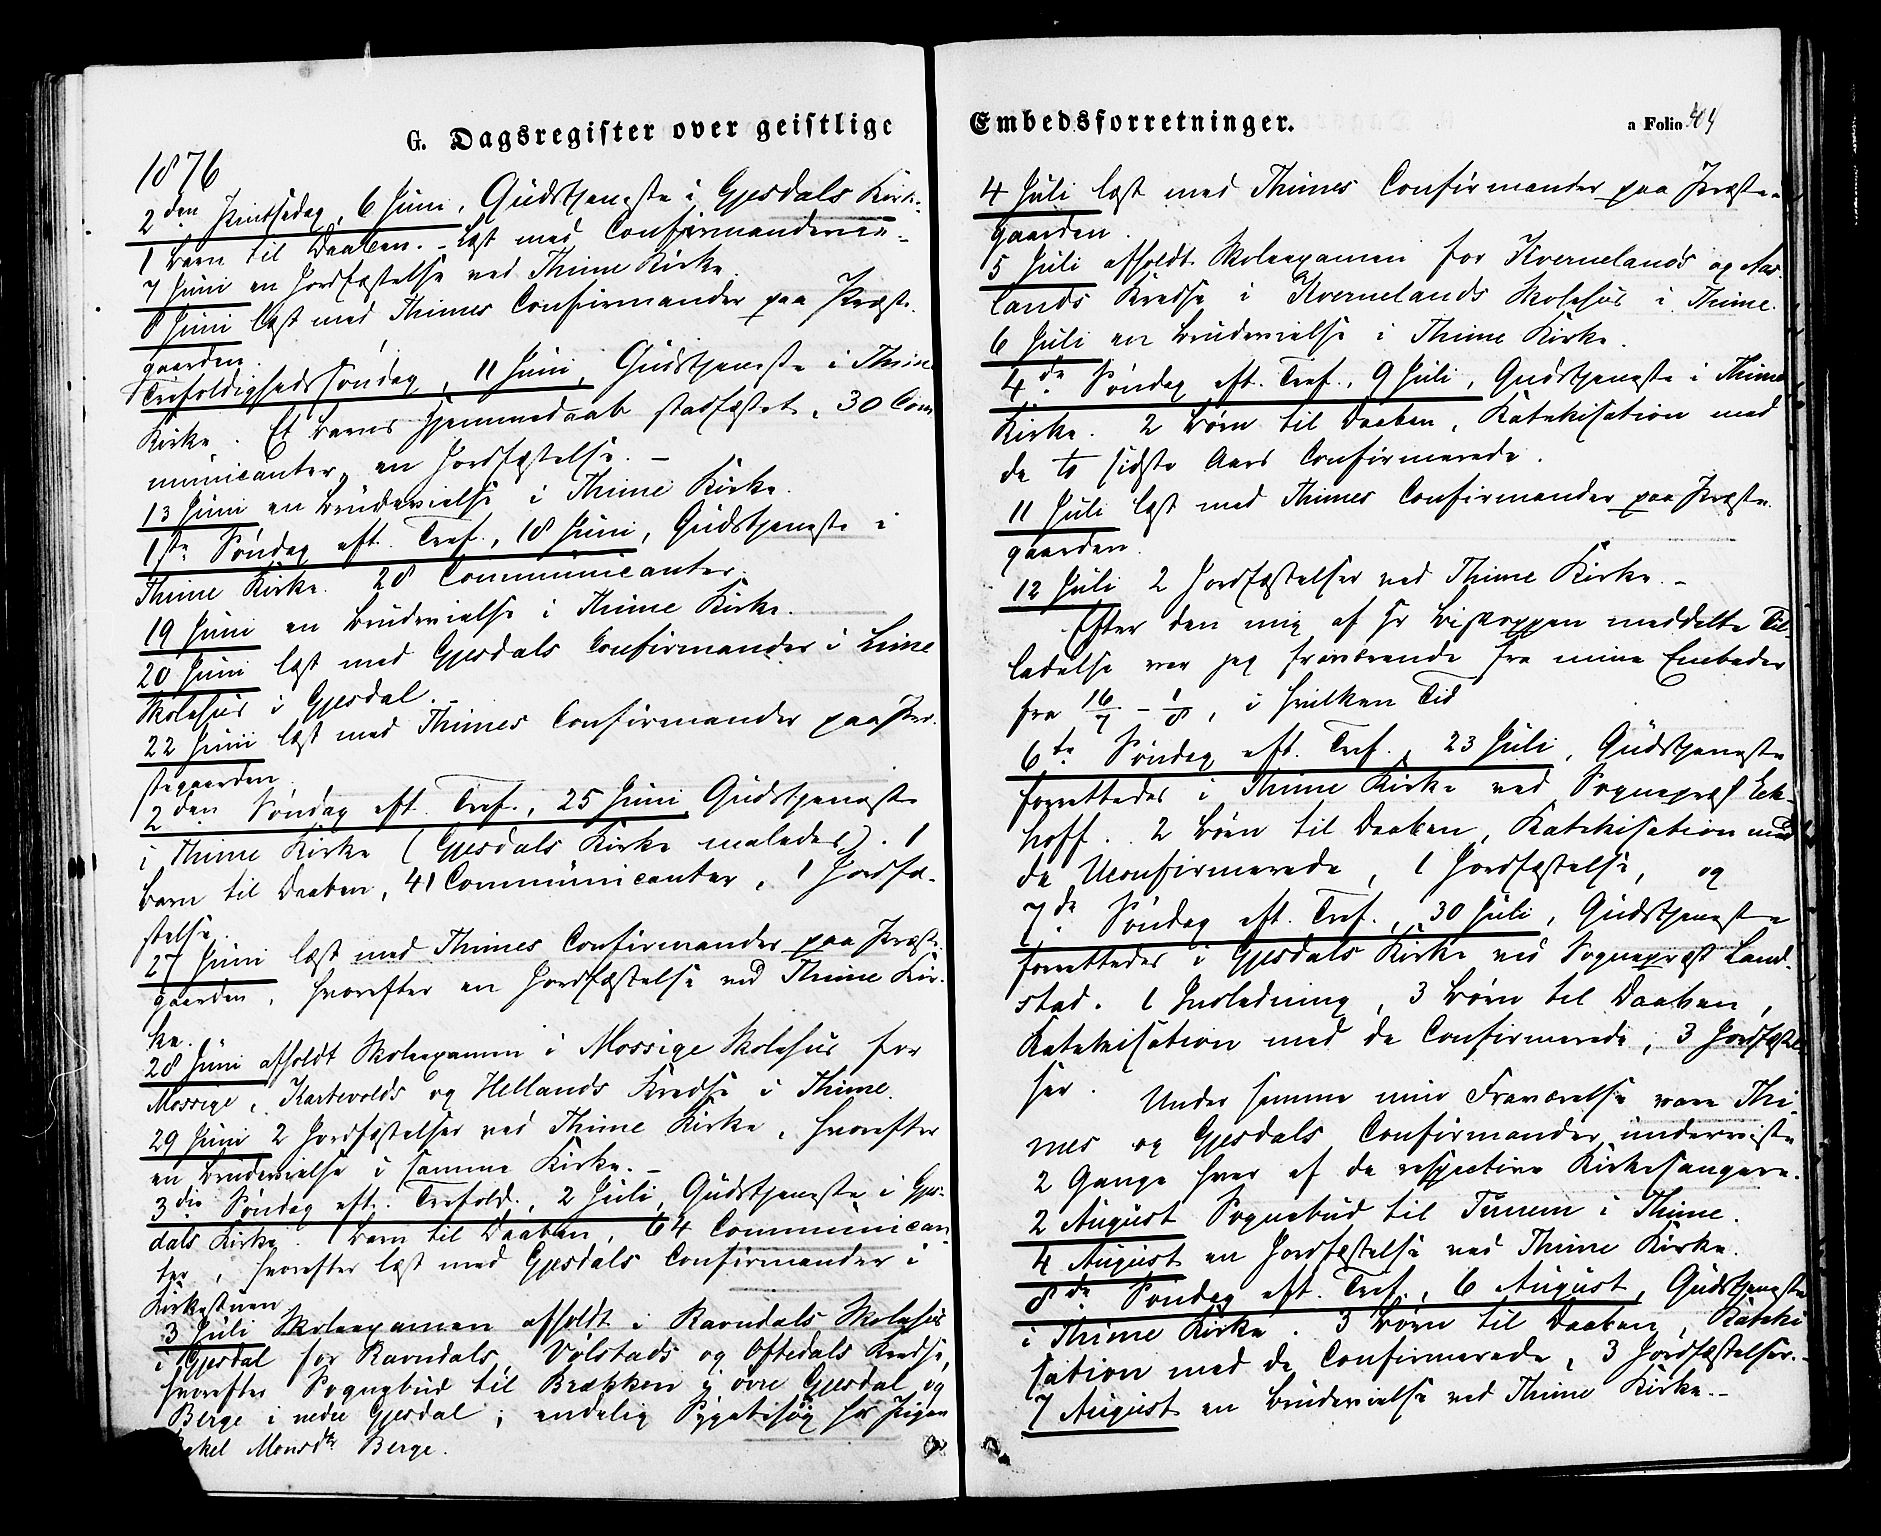 G. Dagsregister over geistlige
1876
2den Pintsedag, 6 Juni, Gudstjeneste i Gjesdals Kirke.
1 Barn til Daaben. - læst med Confirmanderne.
7 Juni en Jordfæstelse ved Thime Kirke.
8 Juni læst med Thimes Confirmander paa Præste-
gaarden.
Trefoldighedssøndag, 11 Juni, Gudstjeneste i Thime
Kirke. Et Barns Hjemmedaab stadfæstet, 30 Com-
municanter, en Jordfæstelse. -
13 Juni en Brudevielse i Thime Kirke.
1ste Søndag eft. Tref., 18 Juni, Gudstjeneste i
Thime Kirke. 28 Communicanter.
19 Juni en Brudevielse i Thime Kirke.
20 Juni læst med Gjesdals Confirmander i Lime
Skolehus i Gjesdal.
22 Juni læst med Thimes Confirmander paa Præ-
stegaarden.
2den Søndag eft. Tref., 25 Juni, Gudstjeneste
i Thime Kirke (Gjesdals Kirke maledes). 1
Barn til Daaben, 41 Communicanter, 1 Jordfæ-
stelse.
27 Juni læst med Thimes Confirmander paa Præste-
gaarden, hvorefter en Jordfæstelse ved Thime Kir-
ke.
28 Juni afholdt Skoleexamen i Mossige Skolehus for
Mossige, Kartevolds og Hellands Kredse i Thime.
29 Juni 2 Jordfæstelser ved Thime Kirke, hvorefter
en Brudevielse i samme Kirke. -
3die Søndag eft. Trefold., 2 Juli, Gudstjeneste i Gjes-
dals Kirke. 1 Barn til Daaben, 64 Communican-
ter, hvorefter læst med Gjesdals Confirmander i
Kirkestuen.
3 Juli Skoleexamen afholdt i Ravndals Skolehus
i Gjesdal for Ravndals, Vølstads og Oftedals Kredse,
hvorefter Sognebud til Brækken i øvre Gjesdal og
Berge i nedre Gjesdal; endelig Sygebesøg hos Pigen
Monsdtr Berge.
Embedsforretninger.
a Folio 404
4 Juli læst med Thimes Confirmander paa Præste-
gaarden.
5 Juli afholdt Skoleexamen for Kvernelands og Aas-
lands Kredse i Kvernelands Skolehus i Thime.
6 Juli en Brudevielse i Thime Kirke.
4de Søndag eft. Tref., 9 Juli, Gudstjeneste i Thime
Kirke. 2 Børn til Daaben, Katekisation med
de to sidste Aars Confirmerede.
11 Juli læst med Thimes Confirmander paa Præste-
gaarden.
12 Juli 2 Jordfæstelser ved Thime Kirke. -
Efter den mig af Hr Biskoppen meddelte Til-
ladelse var jeg fraværende fra mine Embeder
fra 16/7 - 1/8, i hvilken Tid
6te Søndag eft. Tref., 23 Juli, Gudstjeneste
forrettedes i Thime Kirke ved Sognepræst Eck-
hoff. 2 Børn til Daaben, Katekisation med
de Uconfirmerede, 1 Jordfæstelse, og
7de Søndag eft. Tref., 30 Juli, Gudstjeneste
forrettedes i Gjesdals Kirke ved Sognepræst Land-
stad. 1 Indledning, 3 Børn til Daaben,
Katekisation med de Confirmerede, 3 Jordfæstel-
ser.
Under samme min Fraværelse vare Thi-
mes og Gjesdals Confirmander underviste
2 Gange hver af de respective Kirkesangere.
2 August Sognebud til Tunem i Thime.
4 August en Jordfæstelse ved Thime Kirke.
8de Søndag eft. Tref., 6 August, Gudstjeneste
i Thime Kirke. 3 Børn til Daaben, Kateki-
sation med de Confirmerede, 3 Jordfæstelser. -
7 August en Brudevielse ved Thime Kirke. -